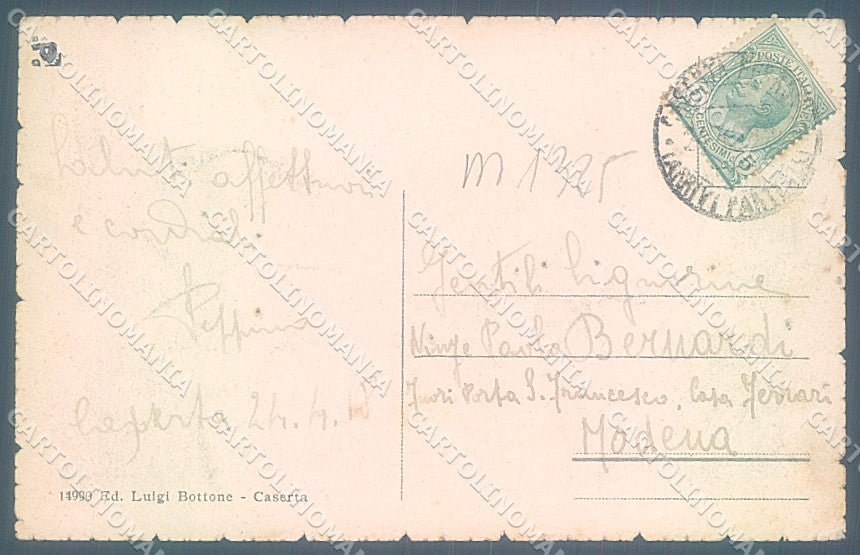 Saluti affettuosi
e cordiali
Peppino
Caserta 24.4.
14990 Ed. Luigi Bottone - Caserta
M1995
POSTE ITALIANE
CENTESIMI 5
Gentili Signorine
Paola Bernardi
Fuori Porta S. Francesco, Casa Ferrari
Modena
CARTOLINOMANIA